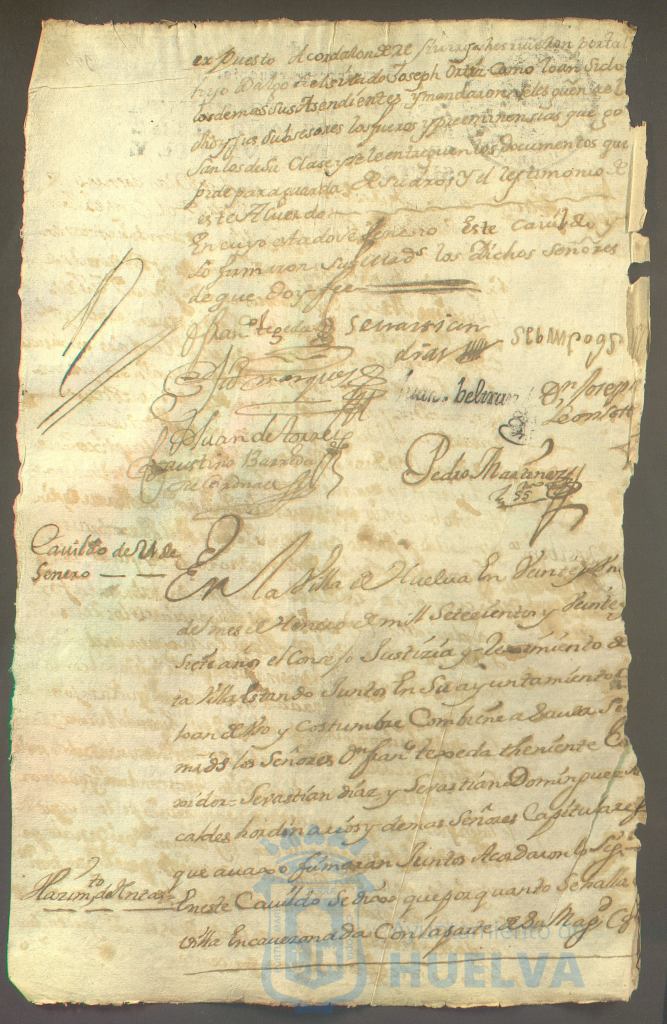 expuesto Acordaron de
hijo Dalgo el citado Joseph Ortiz Como loan sido
los demas sus Asendientes y mandaron seles guarde
subsesores los fueros y preeminensias que go
san los de su Clase y se le entreguen los documentos que
pide para guarda de su dro y el testimonio de
este Acuerdo
En cuyo estado se fenesio Este Cavildo y
Lo firmaron sus Mrds los Dichos Señores
de que doy fee
Franco tegeda Sevastian
dias
marques Juan beltran Dn Joseph
Juan de torres
Faustino Barreda
Pedro Martinez
Cavildo de 21 de
Henero
En la Villa de Huelva En Veinte y un
del mes de Henero de mill Setecientos y Veinte
Siete años el Consejo Justizia y Reximiento de
ta Villa Estando Juntos En Su ayuntamiento
loan de Uso y Costumbre Combiene a Saver Sus
mrds los Señores Dn Franco texeda theniente Co
rexidor Sevastian diaz y Sevastian Dominguez
caldes hordinarios y demas Señores Capitulares
que avaxo firmaran Juntos Acordaron lo Sigte
Hazimto de Rentas
En este Cavildo Se dixo que por quanto Se halla
villa Encavezonada Con la parte de Su Magd
Ayuntamiento de
HUELVA